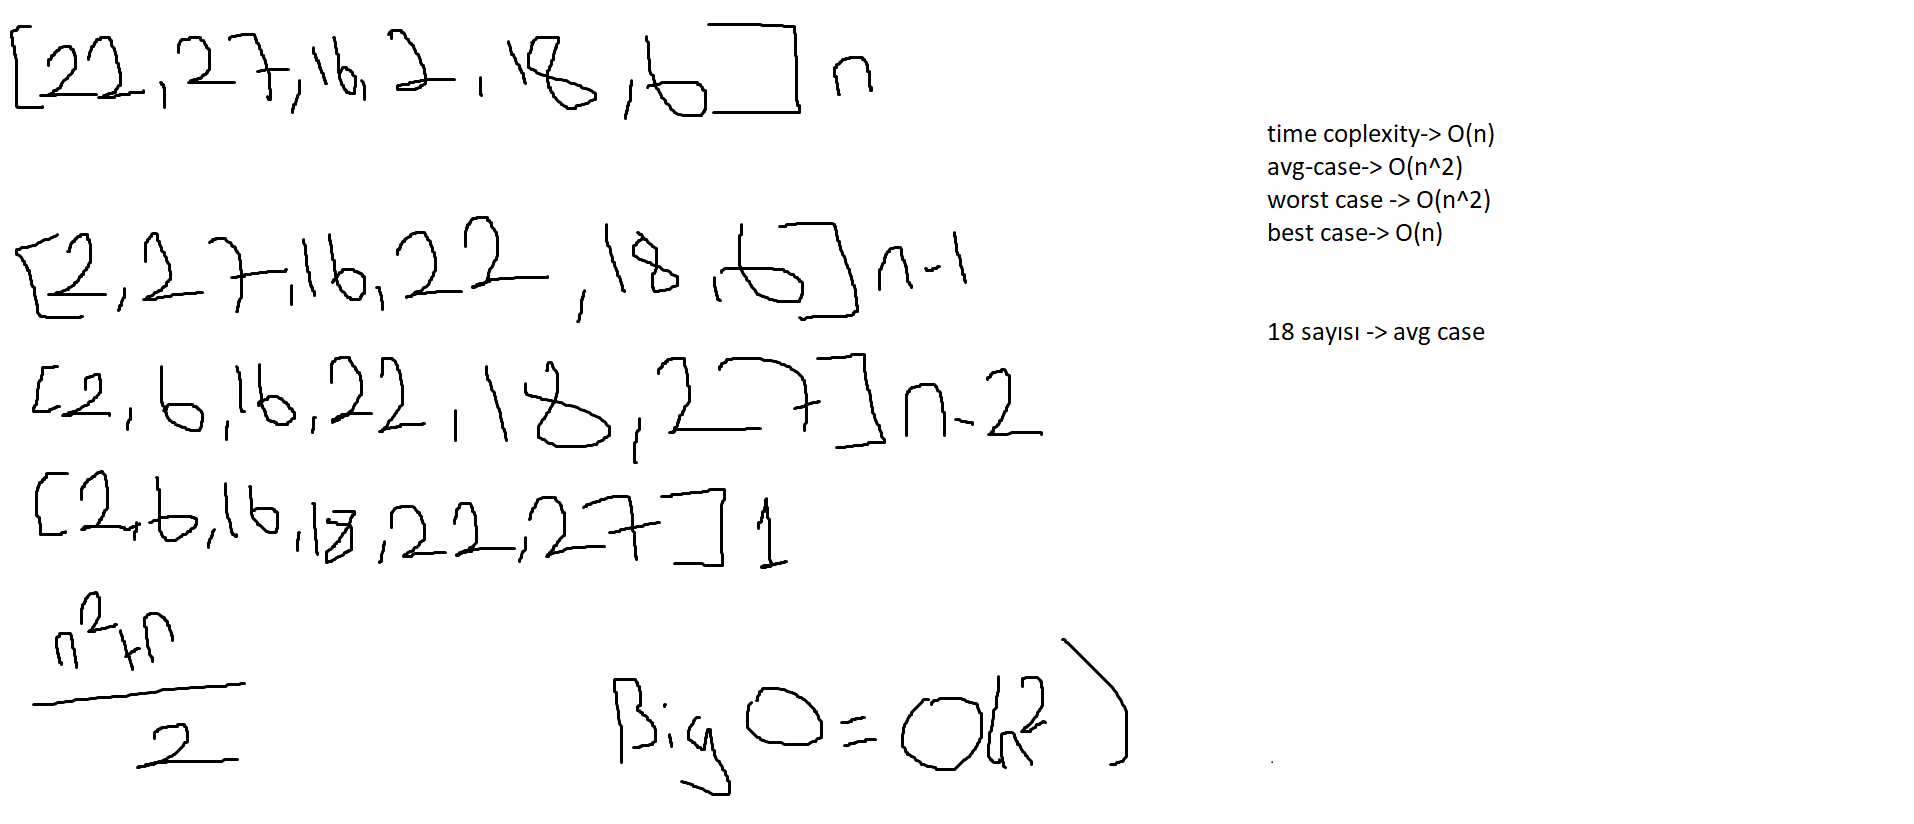 [22,27,16,2,18,6] n
[2,27,16,22,18,6] n-1
[2,6,16,22,18,27] n-2
[2,6,16,18,22,27] 1
n²+n
2
Big O = O(n²)
time coplexity-> O(n)
avg-case-> O(n^2)
worst case -> O(n^2)
best case-> O(n)
18 sayısı -> avg case